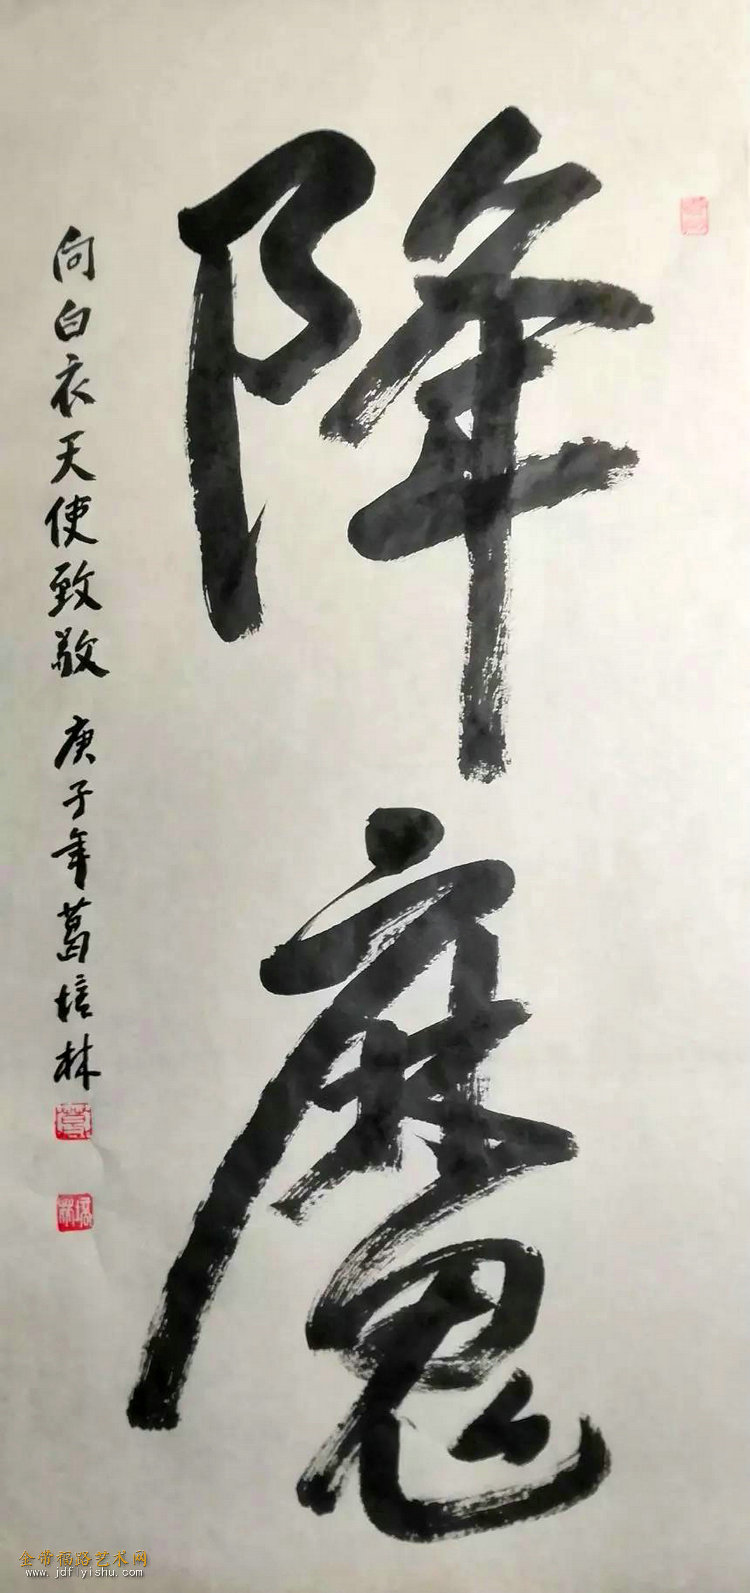 降魔
向白衣天使致敬 庚子年葛培林
金带福路艺术网
www.jdflyishu.com